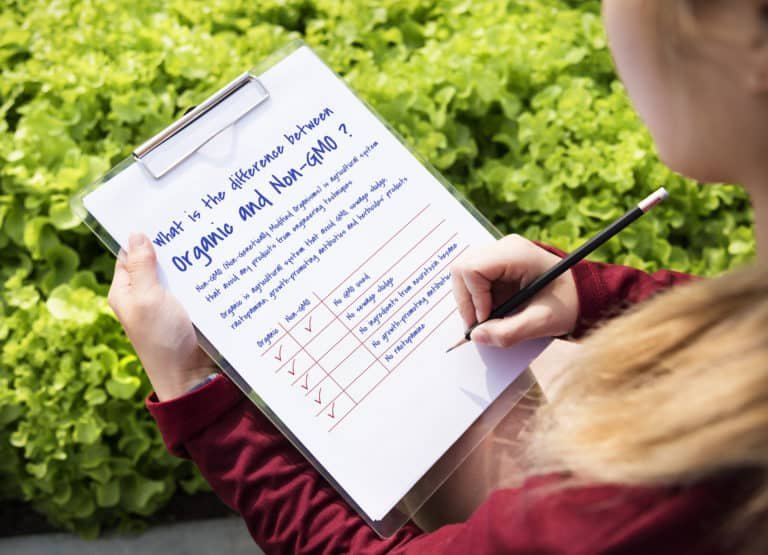 What is the difference between
Organic and Non-GMO ?
Non-GMO (Non-Genetically Modified Organisms) is agricultural system
that avoid any products from engineering techniques
Organic is agricultural system that avoid GMO, sewage sludge,
ractopamine, growth-promoting antibiotics and herbicides' products
Organic Non-GMO
✓ ✓ No GMO used
✓ No sewage sludge
✓ No ingredients from neurotoxin hexane
✓ No growth-promoting antibiotics
✓ No ractopamine